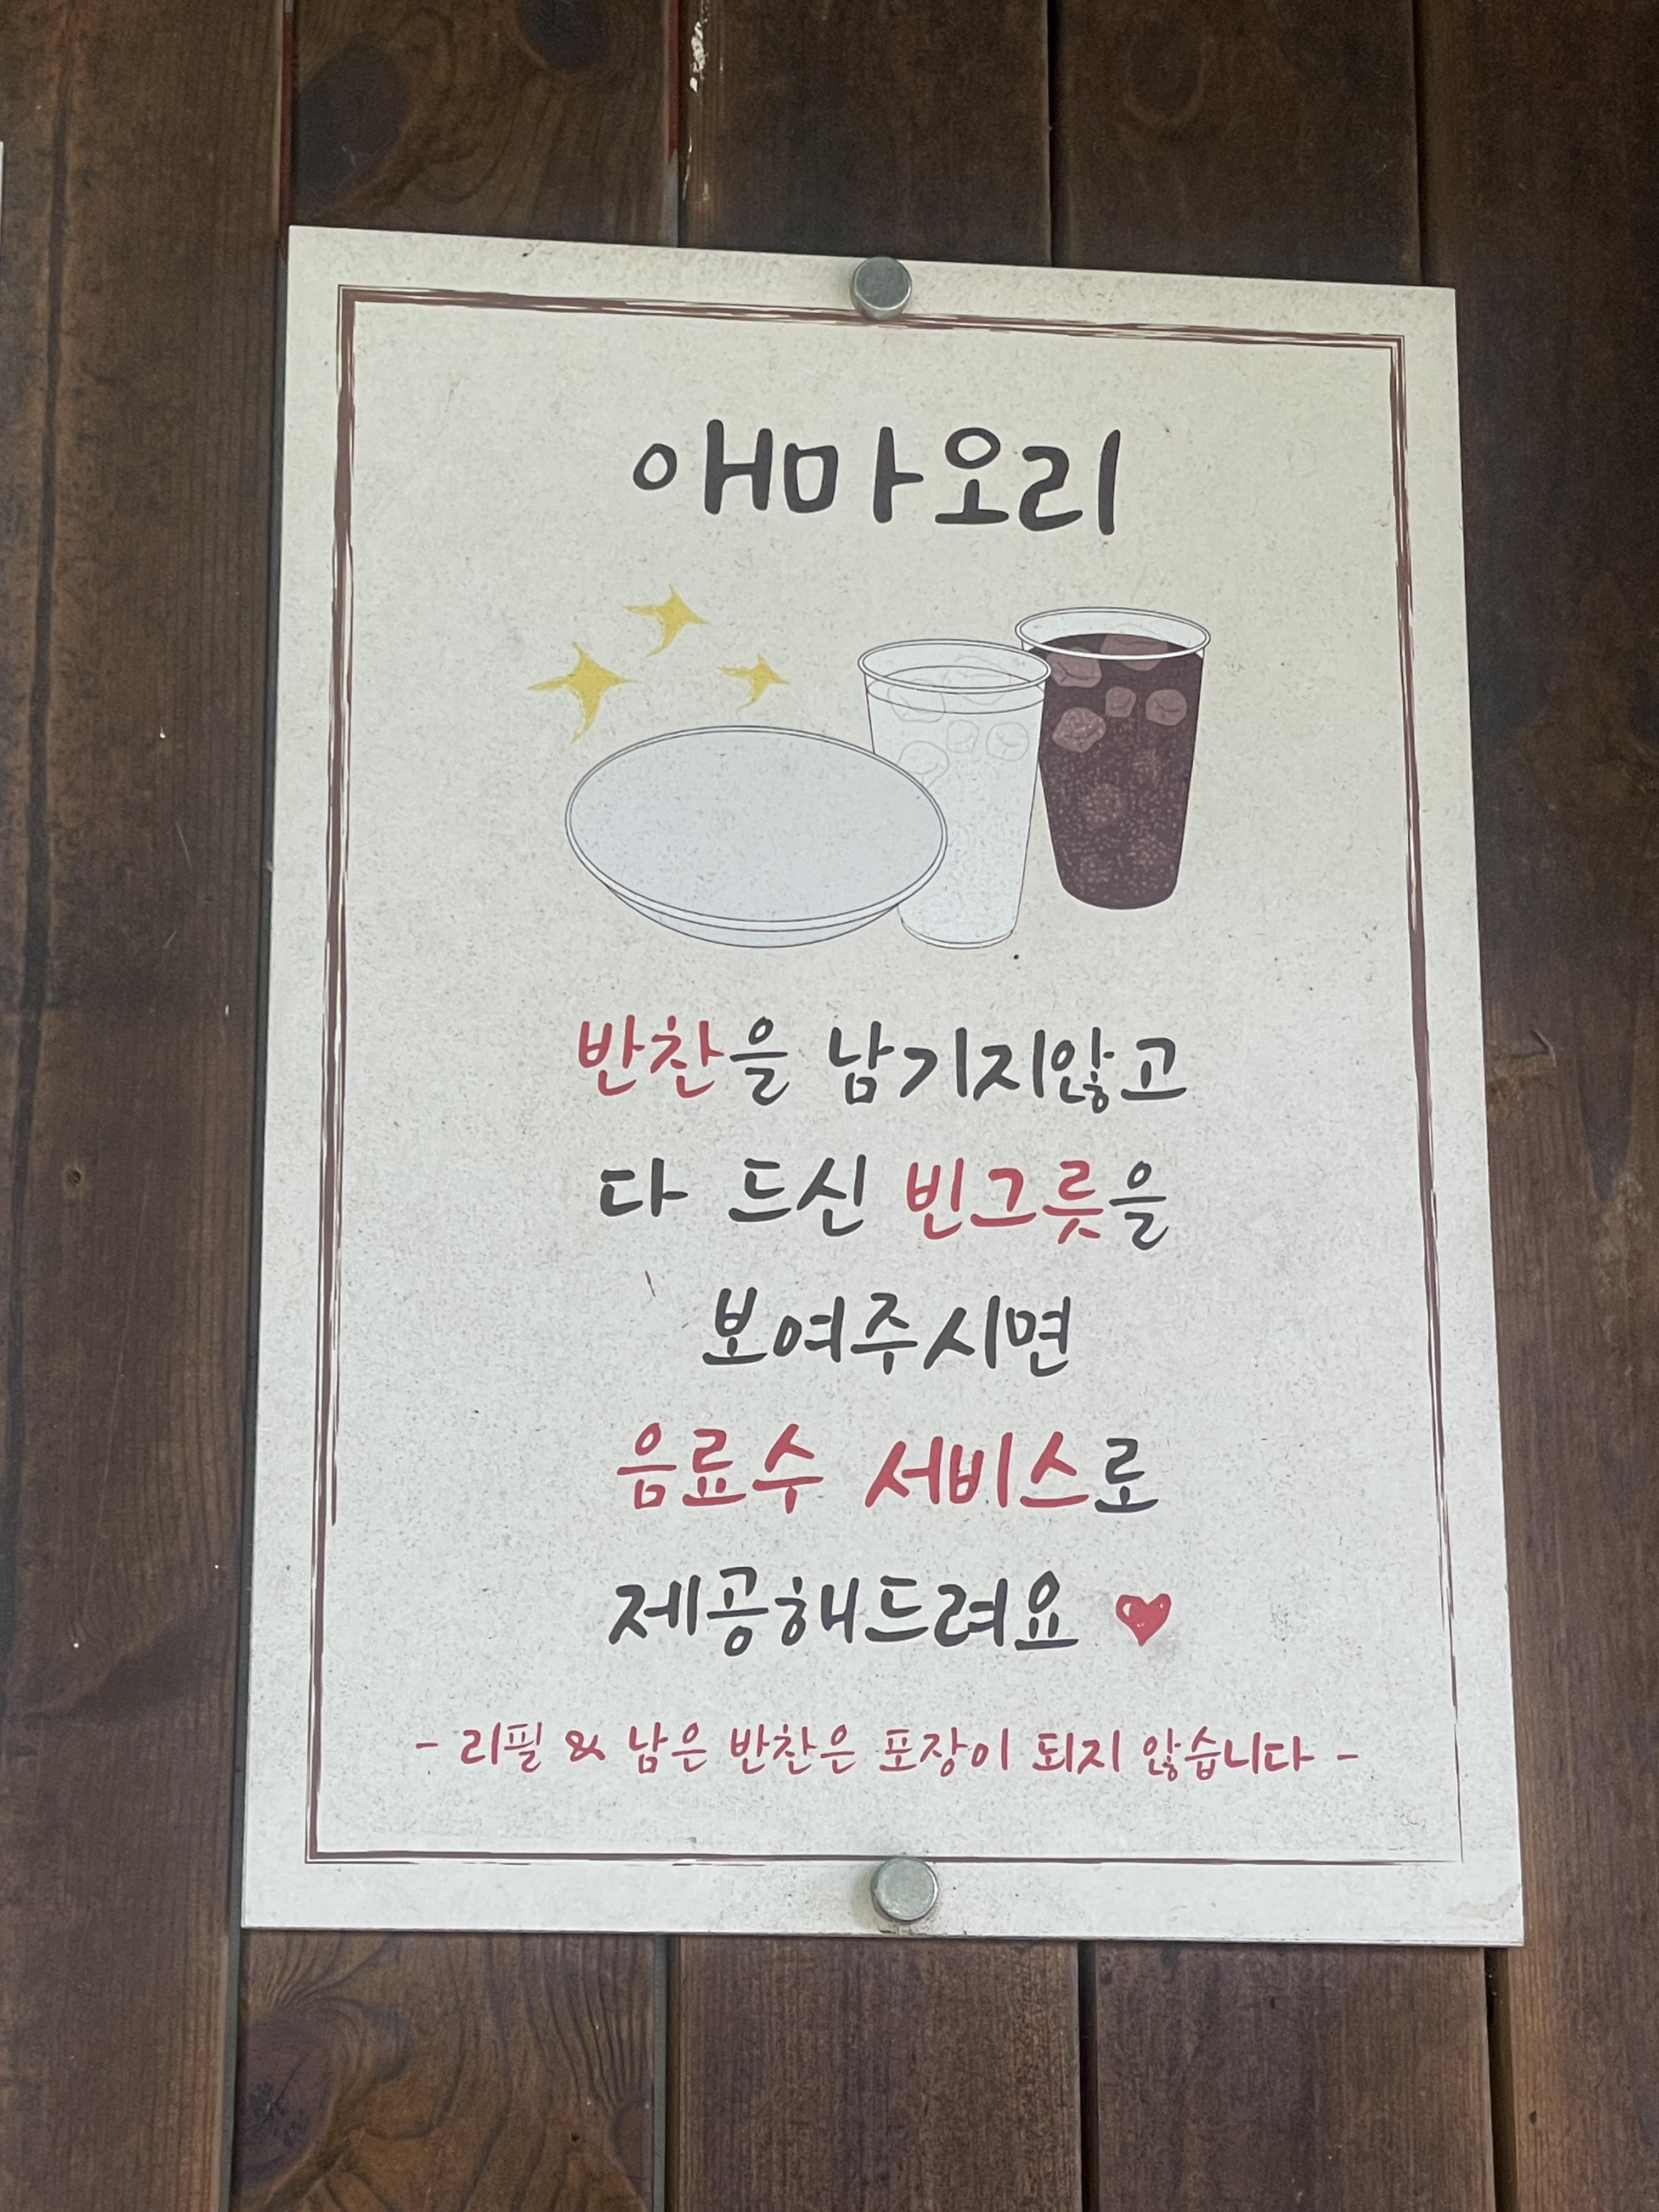 애마오리
반찬을 남기지않고
다 드신 빈그릇을
보여주시면
음료수 서비스로
제공해드려요 ♥
- 리필 & 남은 반찬은 포장이 되지 않습니다 -